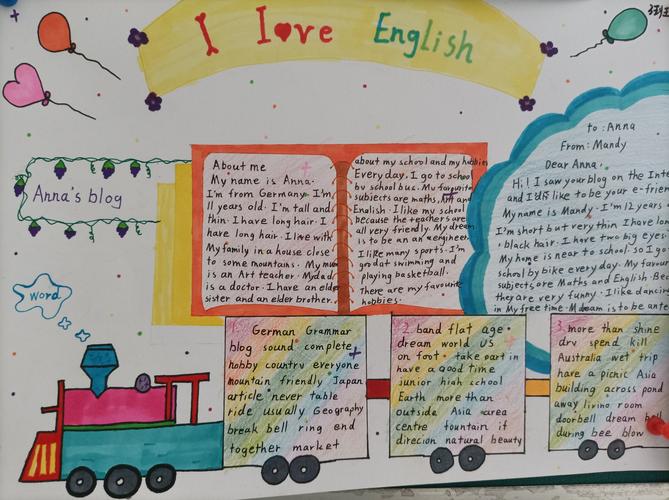 I Love English
Anna's blog
word
About me
My name is Anna.
I'm from Germany. I'm
11 years old. I'm tall and
thin. I have long hair. I
have long hair. I live with
My family in a house close
to some mountains. My mum
is an Art teacher. My dad
is a doctor. I have an elder
sister and an elder brother.
about my school and my hobbies
Every day. I go to school
by school bus. My favourite
subjects are maths, Art and
English. I like my school
because the teachers are
all very friendly. My dream
is to be an an engineer.
I like many sports. I'm
good at swimming and
playing basketball.
there are my favourite
hobbies.
to : Anna
From : Mandy
Dear Anna.
Hi! I saw your blog on the Inte
and I'd like to be your e-frien
My name is Mandy. I'm 12 years
I'm short but very thin I have lon
black hair. I have two big eyes.
My home is near to school. so I go
school by bike every day. My favour
subjects are Maths and English. Bec
they are very funny. I like dancing
in My free time. M dream is to be an
1. German Grammar
blog sound complete
hobby country everyone
mountain friendly Japan
article never table
ride usually Geography
break bell ring end
together market
2. band flat age.
dream world US
on foot. take part in
have a good time
junior high school
Earth more than
outside Asia area
centre fountain if
direcion natural beauty
3. more than shine
dry spend kill
Australia wet trip
have a picnic Asia
building across pond
away living room
doorbell dream bell
during bee blow